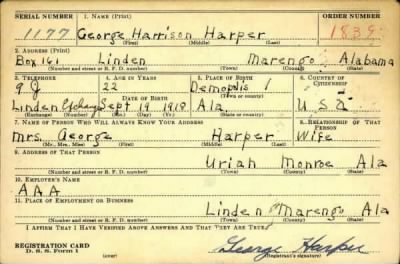 SERIAL NUMBER 1. NAME (Print) ORDER NUMBER
1177 George Harrison Harper 1839
(First) (Middle) (Last)
2. ADDRESS (Print)
Box 161 Linden Marengo Alabama
(Number and street or R. F. D. number) (Town) (County) (State)
3. TELEPHONE 4. AGE IN YEARS 5. PLACE OF BIRTH 6. COUNTRY OF CITIZENSHIP
9 J 22 Demopolis
DATE OF BIRTH (Town or county)
Linden Exchange Sept 19 1918 Ala. USA
(Exchange) (Number) (Mo.) (Day) (Yr.) (State or country)
7. NAME OF PERSON WHO WILL ALWAYS KNOW YOUR ADDRESS 8. RELATIONSHIP OF THAT PERSON
Mrs. George Harper Wife
(Mr., Mrs., Miss) (First) (Middle) (Last)
9. ADDRESS OF THAT PERSON
Uriah Monroe Ala
(Number and street or R. F. D. number) (Town) (County) (State)
10. EMPLOYER'S NAME
AAA
11. PLACE OF EMPLOYMENT OR BUSINESS
Linden Marengo Ala
(Number and street or R. F. D. number) (Town) (County) (State)
I AFFIRM THAT I HAVE VERIFIED ABOVE ANSWERS AND THAT THEY ARE TRUE.
REGISTRATION CARD George Harper
D. S. S. Form 1 (over) (Registrant's signature)